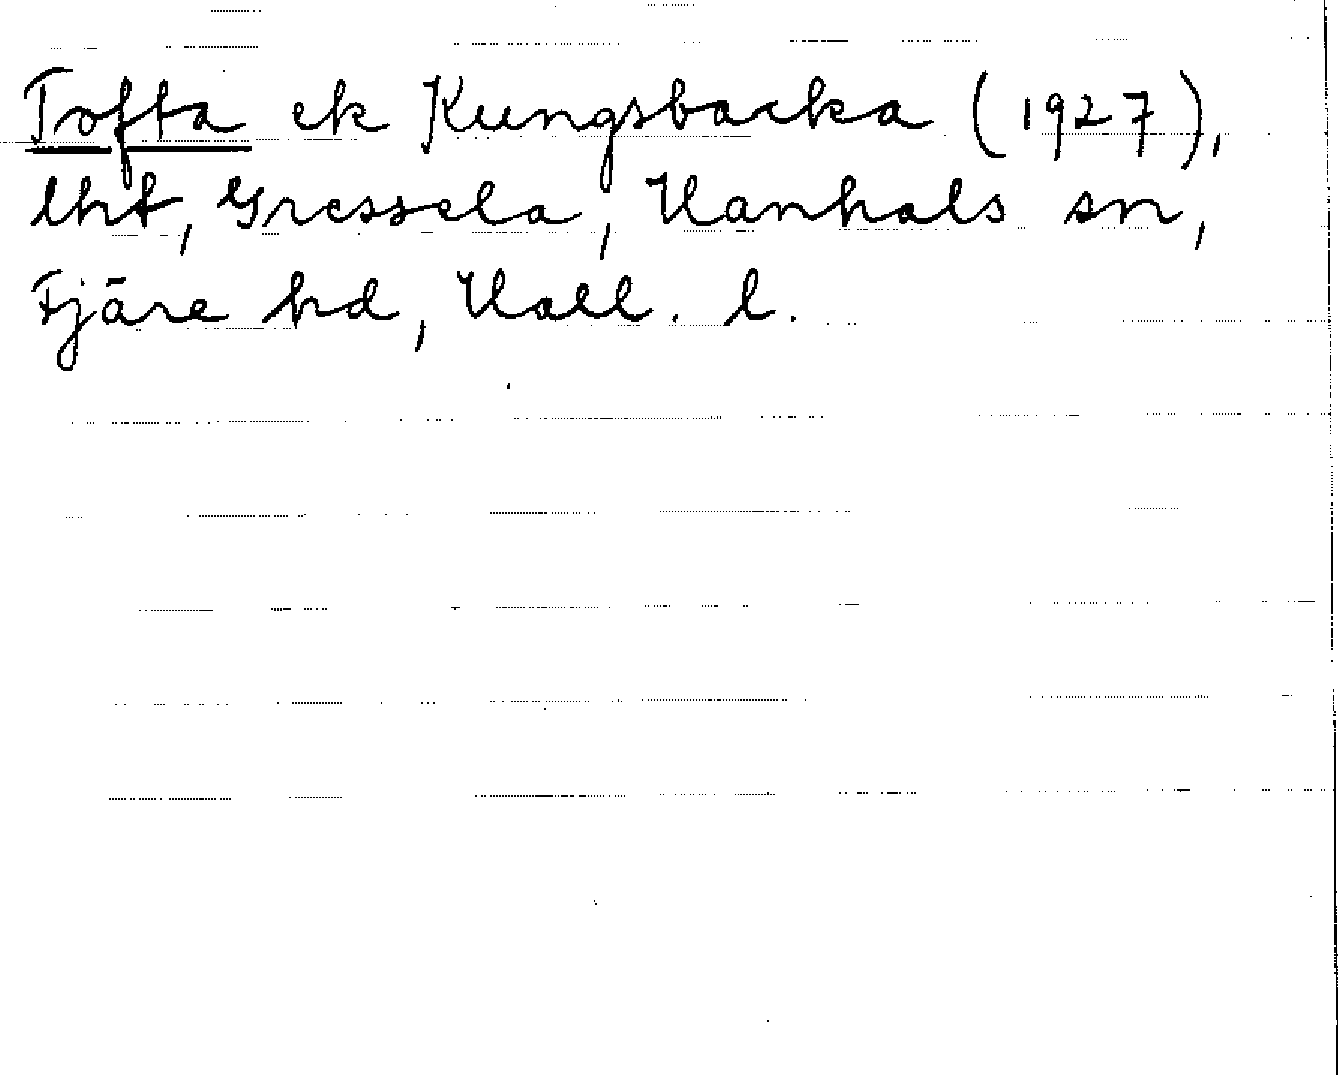 Tofta ek Kungsbacka (1927),
lht, Gressela, Hanhals sn,
Fjäre hd, Hall. l.